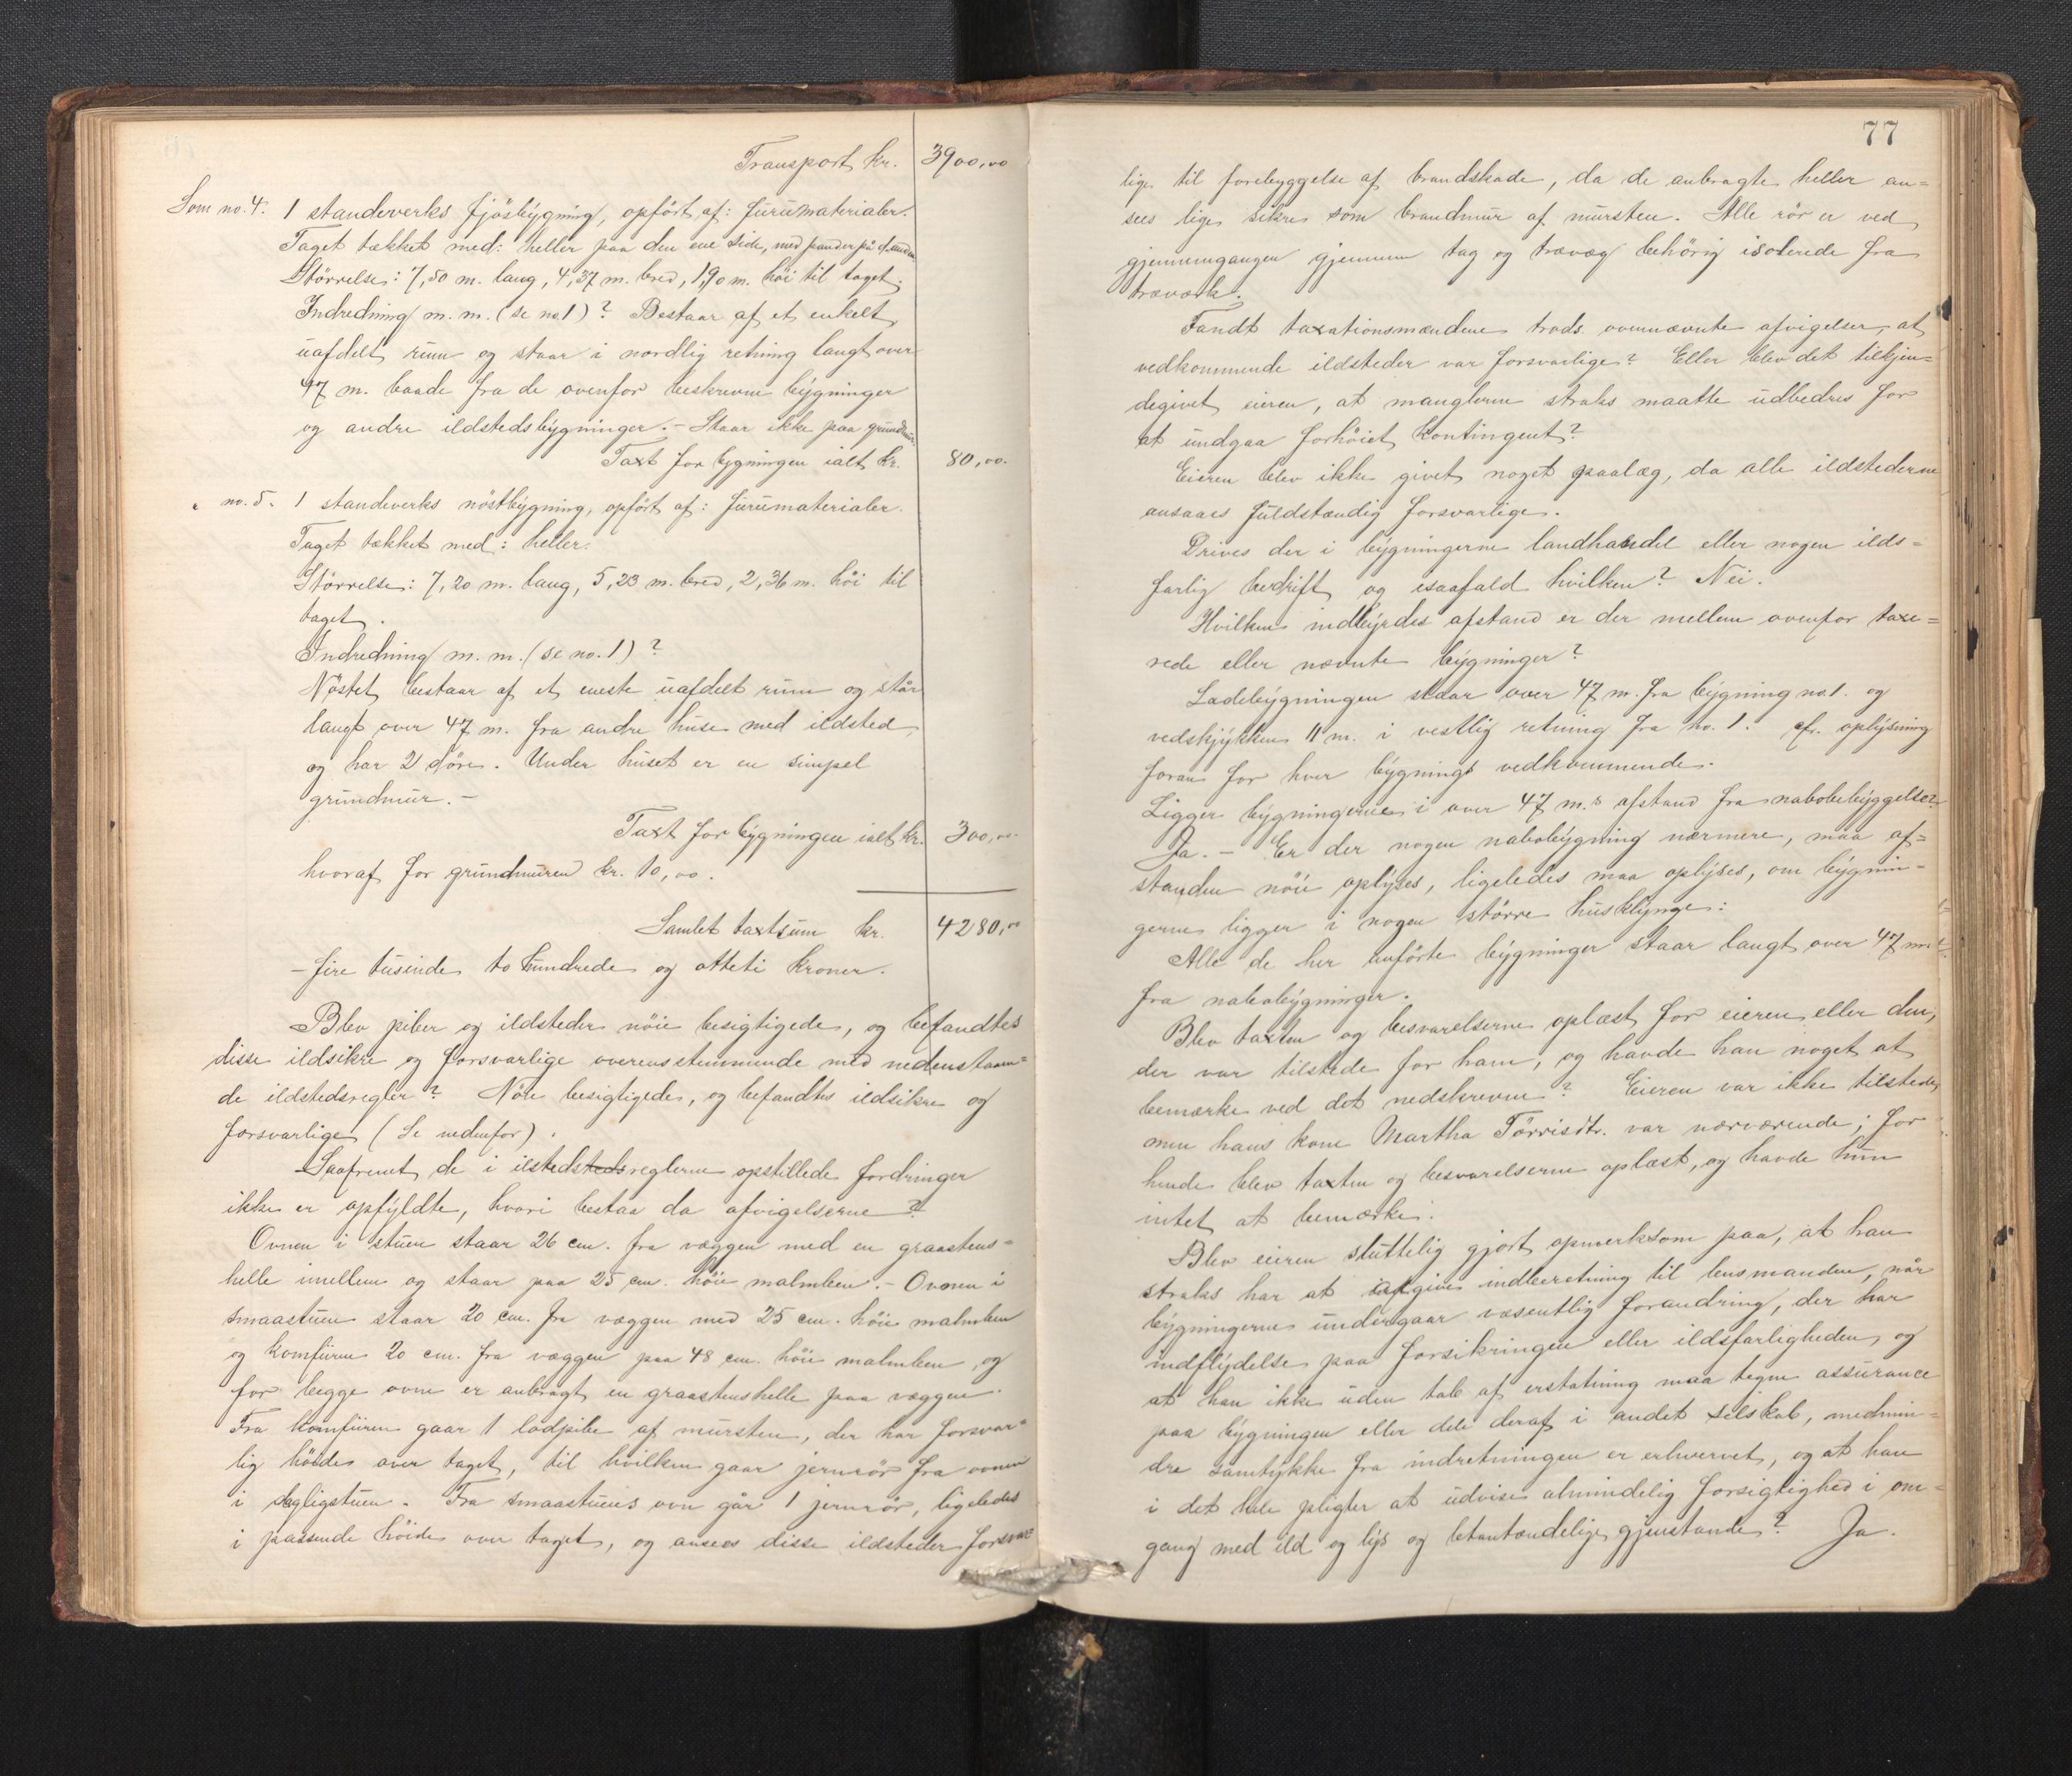 Transport kr. 3900,00
Som no. 4. 1 standeverks fjösbygning, opfört af: furumaterialer.
Taget tækket med: heller paa den ene side, med pander på d. anden.
Störrelse: 7,50 m. lang, 4,37 m. bred, 1,90 m. höi til taget.
Indredning m. m. (se no 1)? Bestaar af et enkelt
uafdelt rum og staar i nordlig retning langt over
47 m. baade fra de ovenfor beskrevne bygninger
og andre ildstedsbygninger. - Staar ikke paa grundmur.
Taxt for bygningen ialt kr. 80,00.
" no. 5. 1 standeverks nöstbygning, opfört af: furumaterialer.
Taget tækket med: heller.
Störrelse: 7,20 m. lang, 5,23 m. bred, 2,36 m. höi til
taget.
Indredning m. m. (se no. 1)?
Nöstet bestaar af et eneste uafdelt rum og står
langt over 47 m. fra andre huse med ildsted
og har 2 döre. Under huset er en simpel
grundmur. -
Taxt for bygningen ialt kr. 300,00.
hvoraf for grundmuren kr. 10,00.
Samlet taxtsum kr. 4280,00
- fire tusinde to hundrede og otteti kroner.
Blev piber og ildsteder nöie besigtigede, og befandtes
disse ildsikre og forsvarlige overensstemmende med nedenstaaen=
de ildstedsregler? Nöie besigtigede, og befandtes ildsikre og
forsvarlige (Se nedenfor).
Saafremt de i ilstedstedsreglerne opstillede fordringer
ikke er opfyldte, hvori bestaa da afvigelserne?
Ovnen i stuen staar 26 cm. fra væggen med en graastens=
helle imellem og staar paa 25 cm. höie malmben. - Ovnen i
smaastuen staar 20 cm. fra væggen med 25 cm. höie malmben
og komfuren 20 cm. fra væggen paa 48 cm. höie malmben, og
for begge ovne er anbragt en graastenshelle paa væggen.
Fra komfuren gaar 1 lodpibe af mursten, der har forsvar=
lig höide over taget, til hvilken gaar jernrör fra ovnen
i dagligstuen. Fra smaastuens ovn går 1 jernrör, ligeledes
i passende höide over taget, og ansees disse ildsteder forsvar=
77
lige til forebyggelse af brandskade, da de anbragte heller an=
sees lige sikre som brandmur af mursten. Alle rör er ved
gjennemgangen gjennem tag og trævæg behörig isolerede fra
træværk.
Fandt taxationsmændene trods ovennævnte afvigelser, at
vedkommende ildsteder var forsvarlige? Eller blev det tilkjen=
degivet eieren, at manglerne straks maatte udbedres for
at undgaa forhöiet kontingent?
Eieren blev ikke givet noget paalæg, da alle ildstederne
ansaaes fuldstændig forsvarlige.
Drives der i bygningerne landhandel eller nogen ilds=
farlig bedrift og isaafald hvilken? Nei.
Hvilken indbyrdes afstand er der mellem ovenfor taxe=
rede eller nævnte bygninger?
Ladebygningen staar over 47 m. fra bygning no. 1. og
vedskjykken 11 m. i vestlig retning fra no. 1. cfr. oplysning
foran for hver bygnings vedkommende.
Ligger bygningerne i over 47 m.s afstand fra nabobebyggelse?
Ja. - Er der nogen nabobygning nærmere, maa af=
standen nöie oplyses, ligeledes maa oplyses, om bygnin=
gerne ligger i nogen större husklynge:
Alle de her anförte bygninger staar langt over 47 m.
fra nabobygninger.
Blev taxten og besvarelserne oplæst for eieren eller den,
der var tilstede for ham, og havde han noget at
bemærke ved det nedskrevne? Eieren var ikke tilstede,
men hans kone Martha Törrisdtr. var nærværende; for
hende blev taxten og besvarelserne oplæst, og havde hun
intet at bemærke.
Blev eieren sluttelig gjort opmerksom paa, at han
straks har at afgive indberetning til lensmanden, når
bygningerne undergaar væsentlig forandring, der har
indflydelse paa forsikringen eller ildsfarligheden, og
at han ikke uden tab af erstatning maa tegne assurance
paa bygningen eller dele deraf i andet selskab, medmin=
dre samtykke fra indretningen er erhvervet, og at han
i det hele pligter at udvise almindelig forsigtighed i om=
gang med ild og lys og letantændelige gjenstande? Ja.